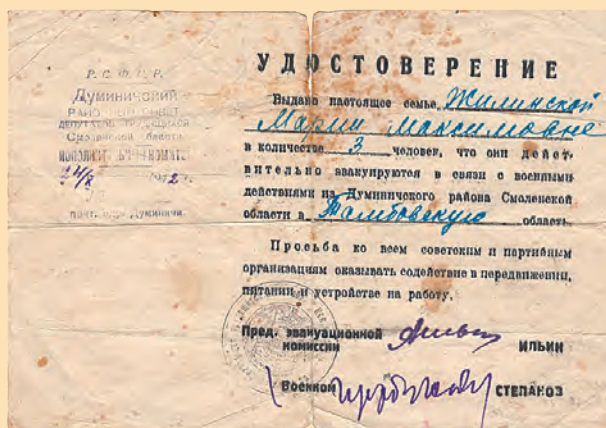 Р. С. Ф. С. Р.
Думиничский
РАЙОННЫЙ СОВЕТ
ДЕПУТАТОВ ТРУДЯЩИХСЯ
Смоленской области
24/8 1942 г.
УДОСТОВЕРЕНИЕ
Выдано настоящее семье Жилинской
Марии Максимовне
в количестве 3 человек, что они действительно
вительно эвакуируются в связи с военными
действиями из Думиничского района Смоленской
области в Тамбовскую область.
Просьба ко всем советским и партийным
организациям оказывать содействие в передвижении,
питании и устройстве на работу.
Пред. эвакуационной
комиссии ИЛЬИН
Военком СТЕПАНОЗ